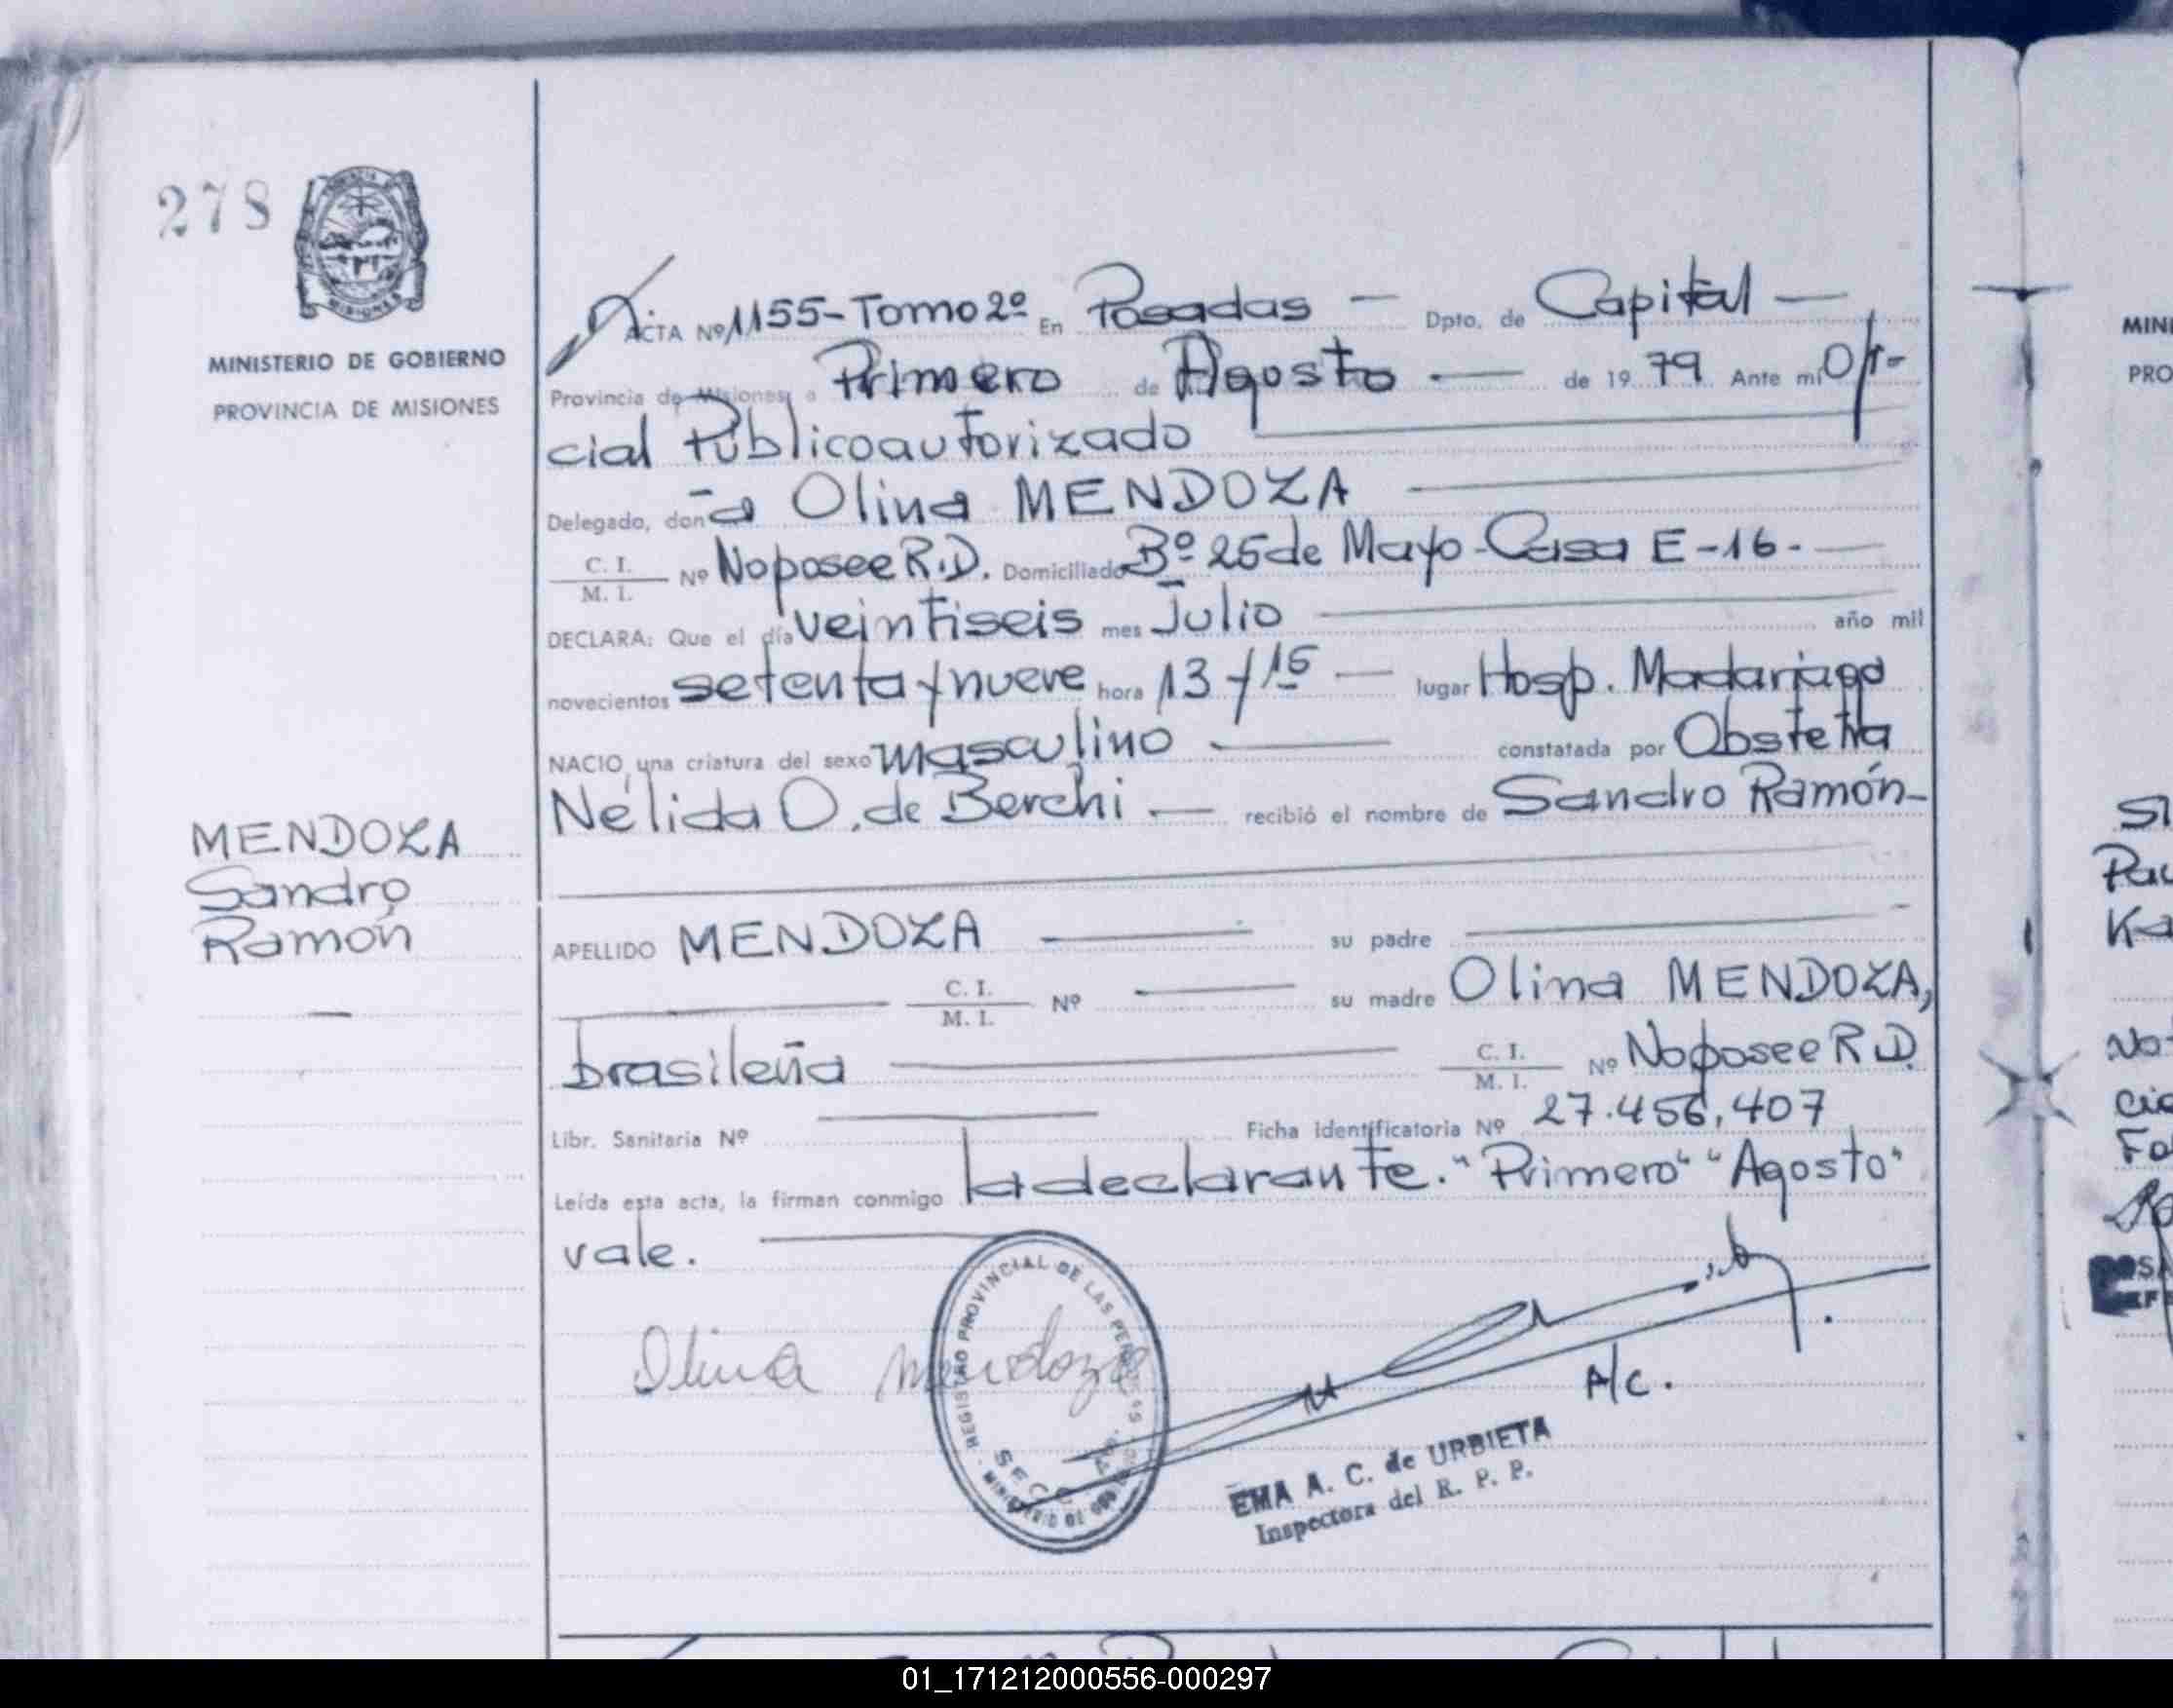 278
PROVINCIA DE MISIONES
MINISTERIO DE GOBIERNO
PROVINCIA DE MISIONES
MENDOZA
Sandro
Ramón
ACTA Nº 1155-Tomo 2º En Posadas — Dpto. de Capital —
Provincia de Misiones, a Primero de Agosto — de 1979 Ante mí Ofi-
cial Público autorizado
Delegado, doña Olina MENDOZA
C. I. / M. I. Nº No posee R.D. Domiciliado Bº 25 de Mayo - Casa E-16.-
DECLARA: Que el día veintiseis mes Julio año mil
novecientos setenta y nueve hora 13 y 15 — lugar Hosp. Madariaga
NACIO una criatura del sexo masculino — constatada por Obstetra
Nélida O. de Berchi — recibió el nombre de Sandro Ramón-
APELLIDO MENDOZA — su padre —
C. I. / M. I. Nº — su madre Olina MENDOZA,
brasileña — C. I. / M. I. Nº No posee R.D.
Libr. Sanitaria Nº — Ficha Identificatoria Nº 27.456,407
Leída esta acta, la firman conmigo la declarante. "Primero" "Agosto"
vale.
Olina Mendoza
REGISTRO PROVINCIAL DE LAS PERSONAS
MINISTERIO DE
A/C.
EMA A. C. de URBIETA
Inspectora del R. P. P.
MINI
PRO
Ka
cia
01_171212000556-000297